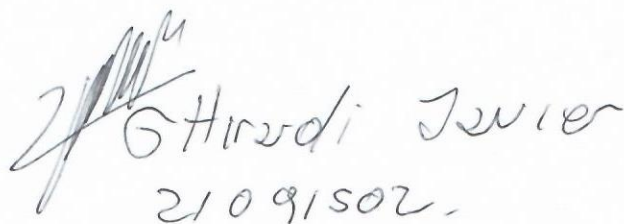 GHirardi Javier
21091502.